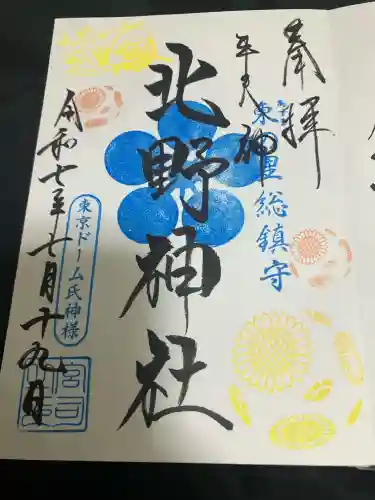 奉拝
東
総鎮守
北野神社
令和七年七月十九日
東京ドーム氏神様